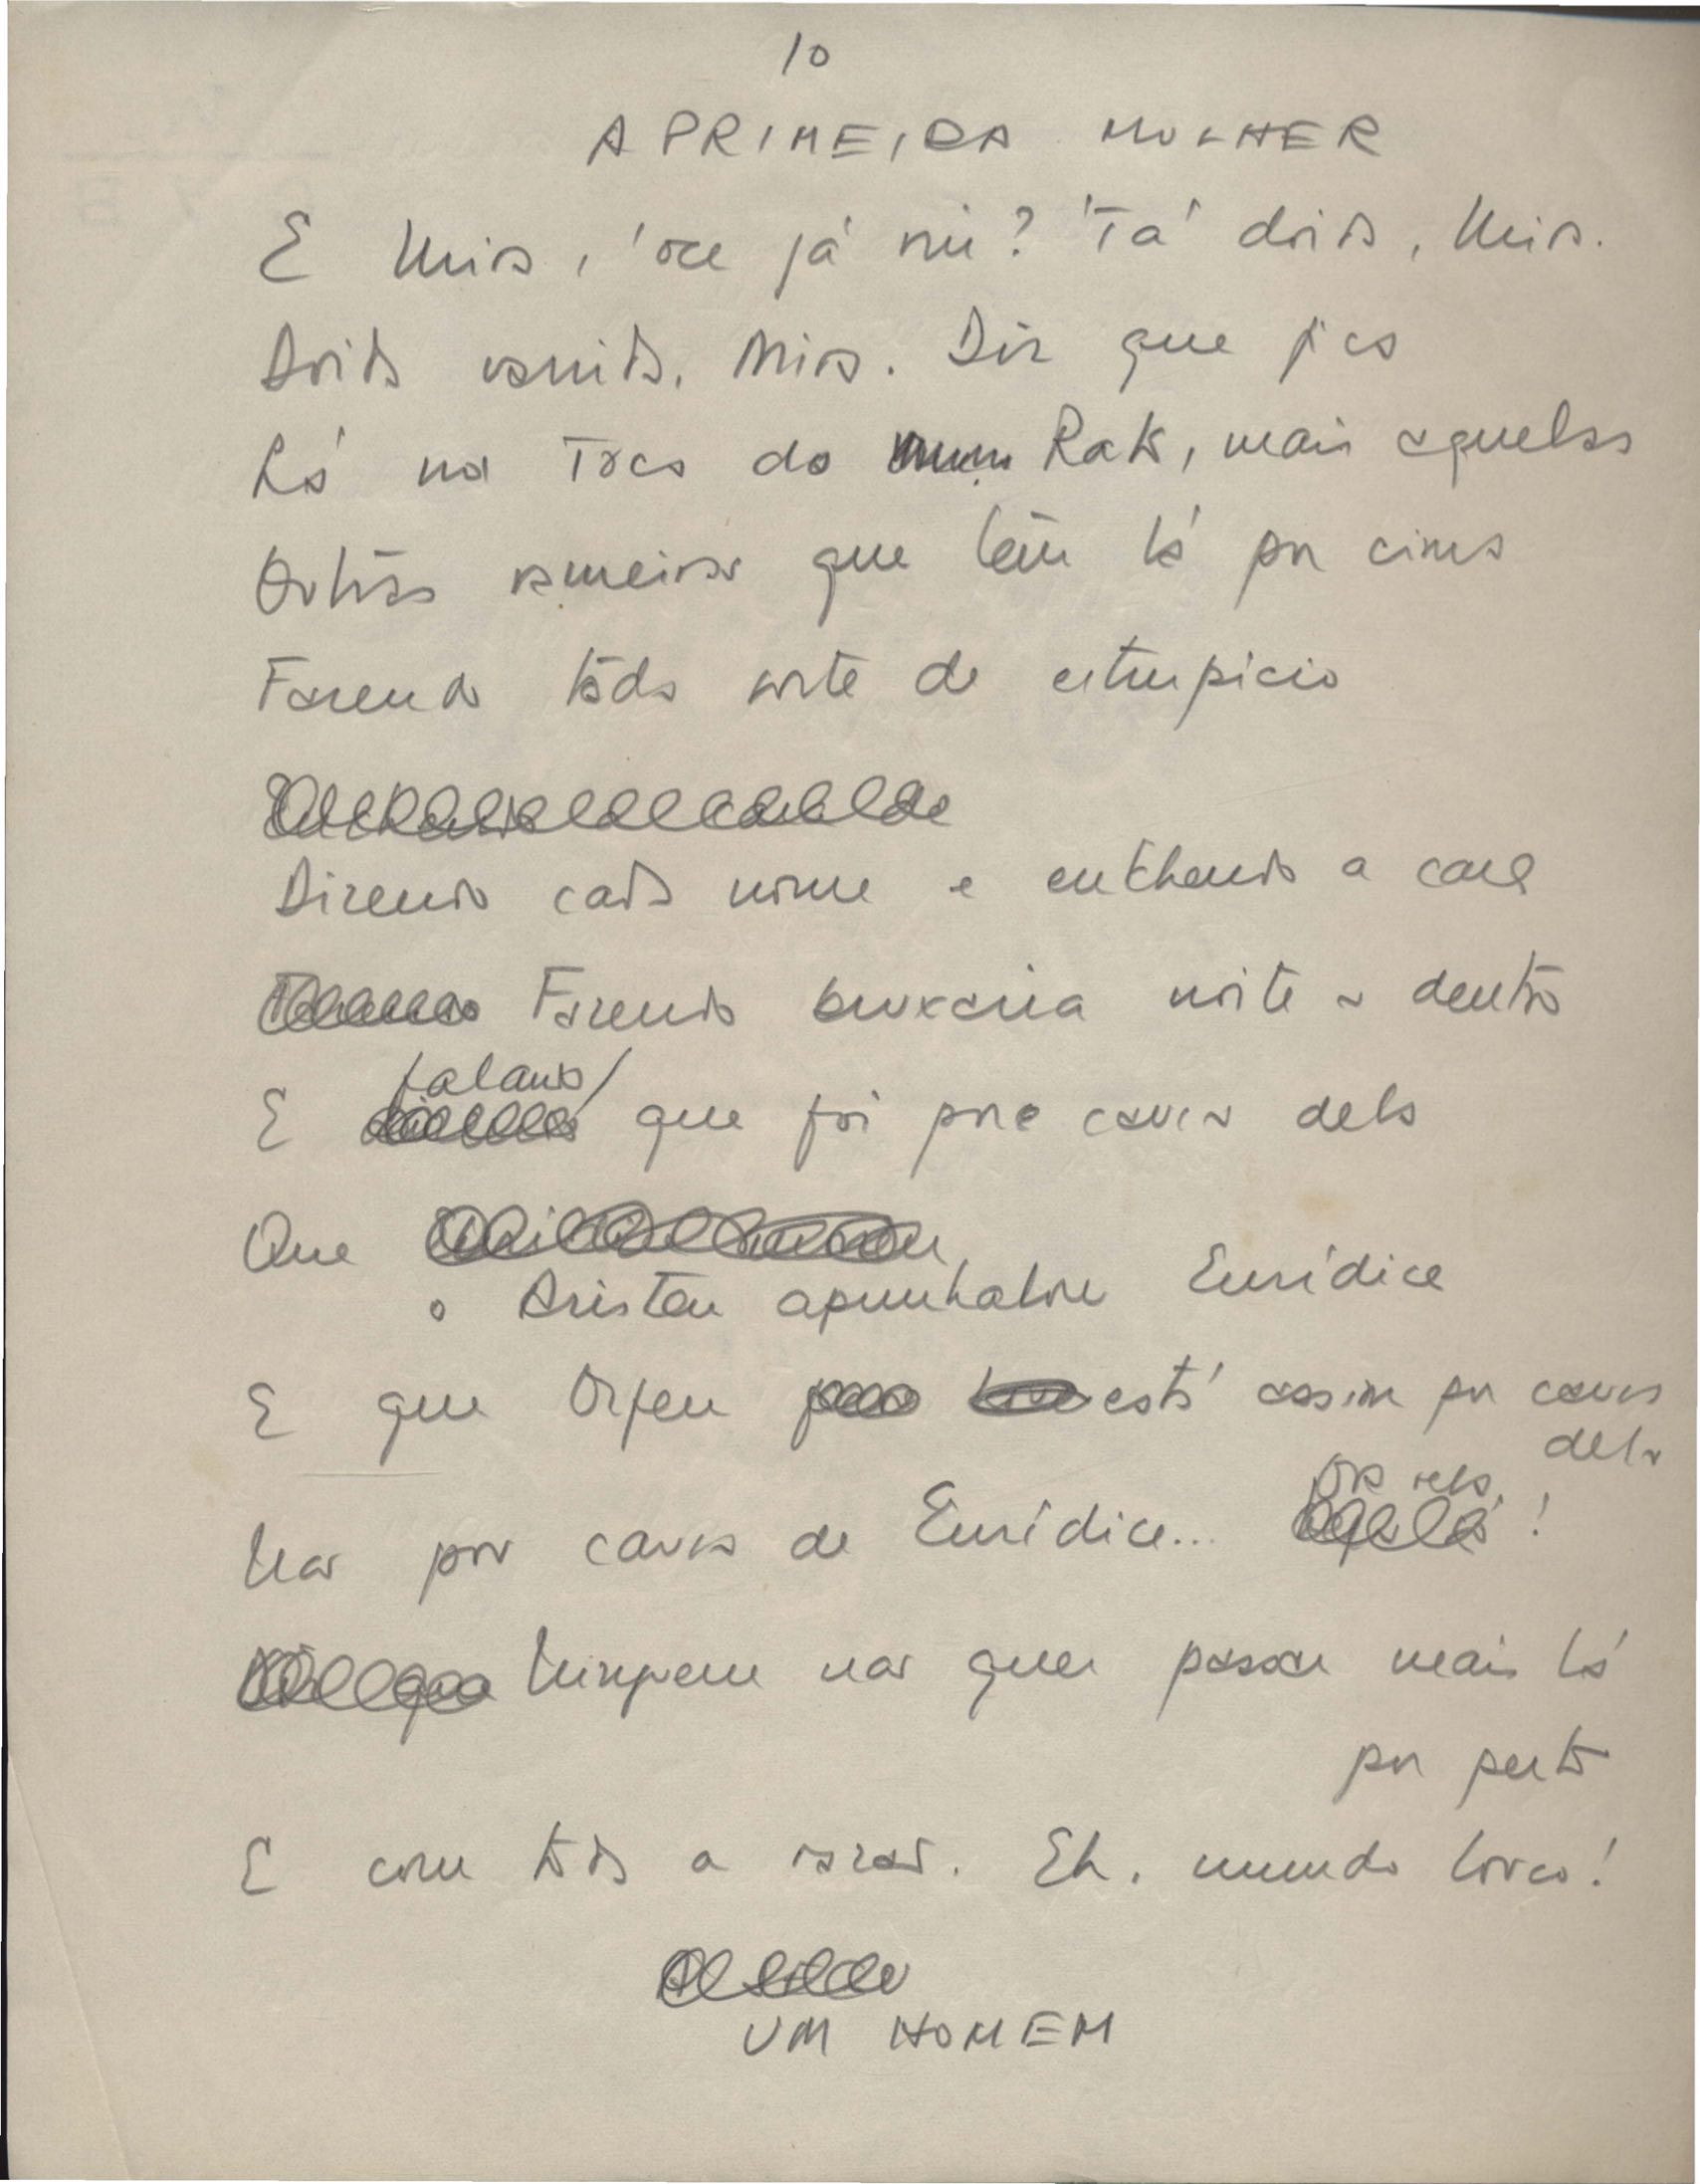 10
A PRIMEIRA MULHER
E Mira, 'ocê já viu? 'Tá doida, Mira.
Doida varrida, Mira. Diz que fica
Lá na Toca do Rato, mais aquelas
Outras rameiras que têm lá por cima
Fazendo tôda sorte de estrupício
Dizendo cada nome e enchendo a cara
Fazendo bruxaria noite a dentro
E falando que foi por causa dela
Que
o Aristeu apunhalou Eurídice
E que Orfeu está assim por causa
dela
Não por causa de Eurídice...
pra ela!
Ninguem não quer passar mais lá
por perto
E com tôda a razão. Eh, mundo louco!
UM HOMEM